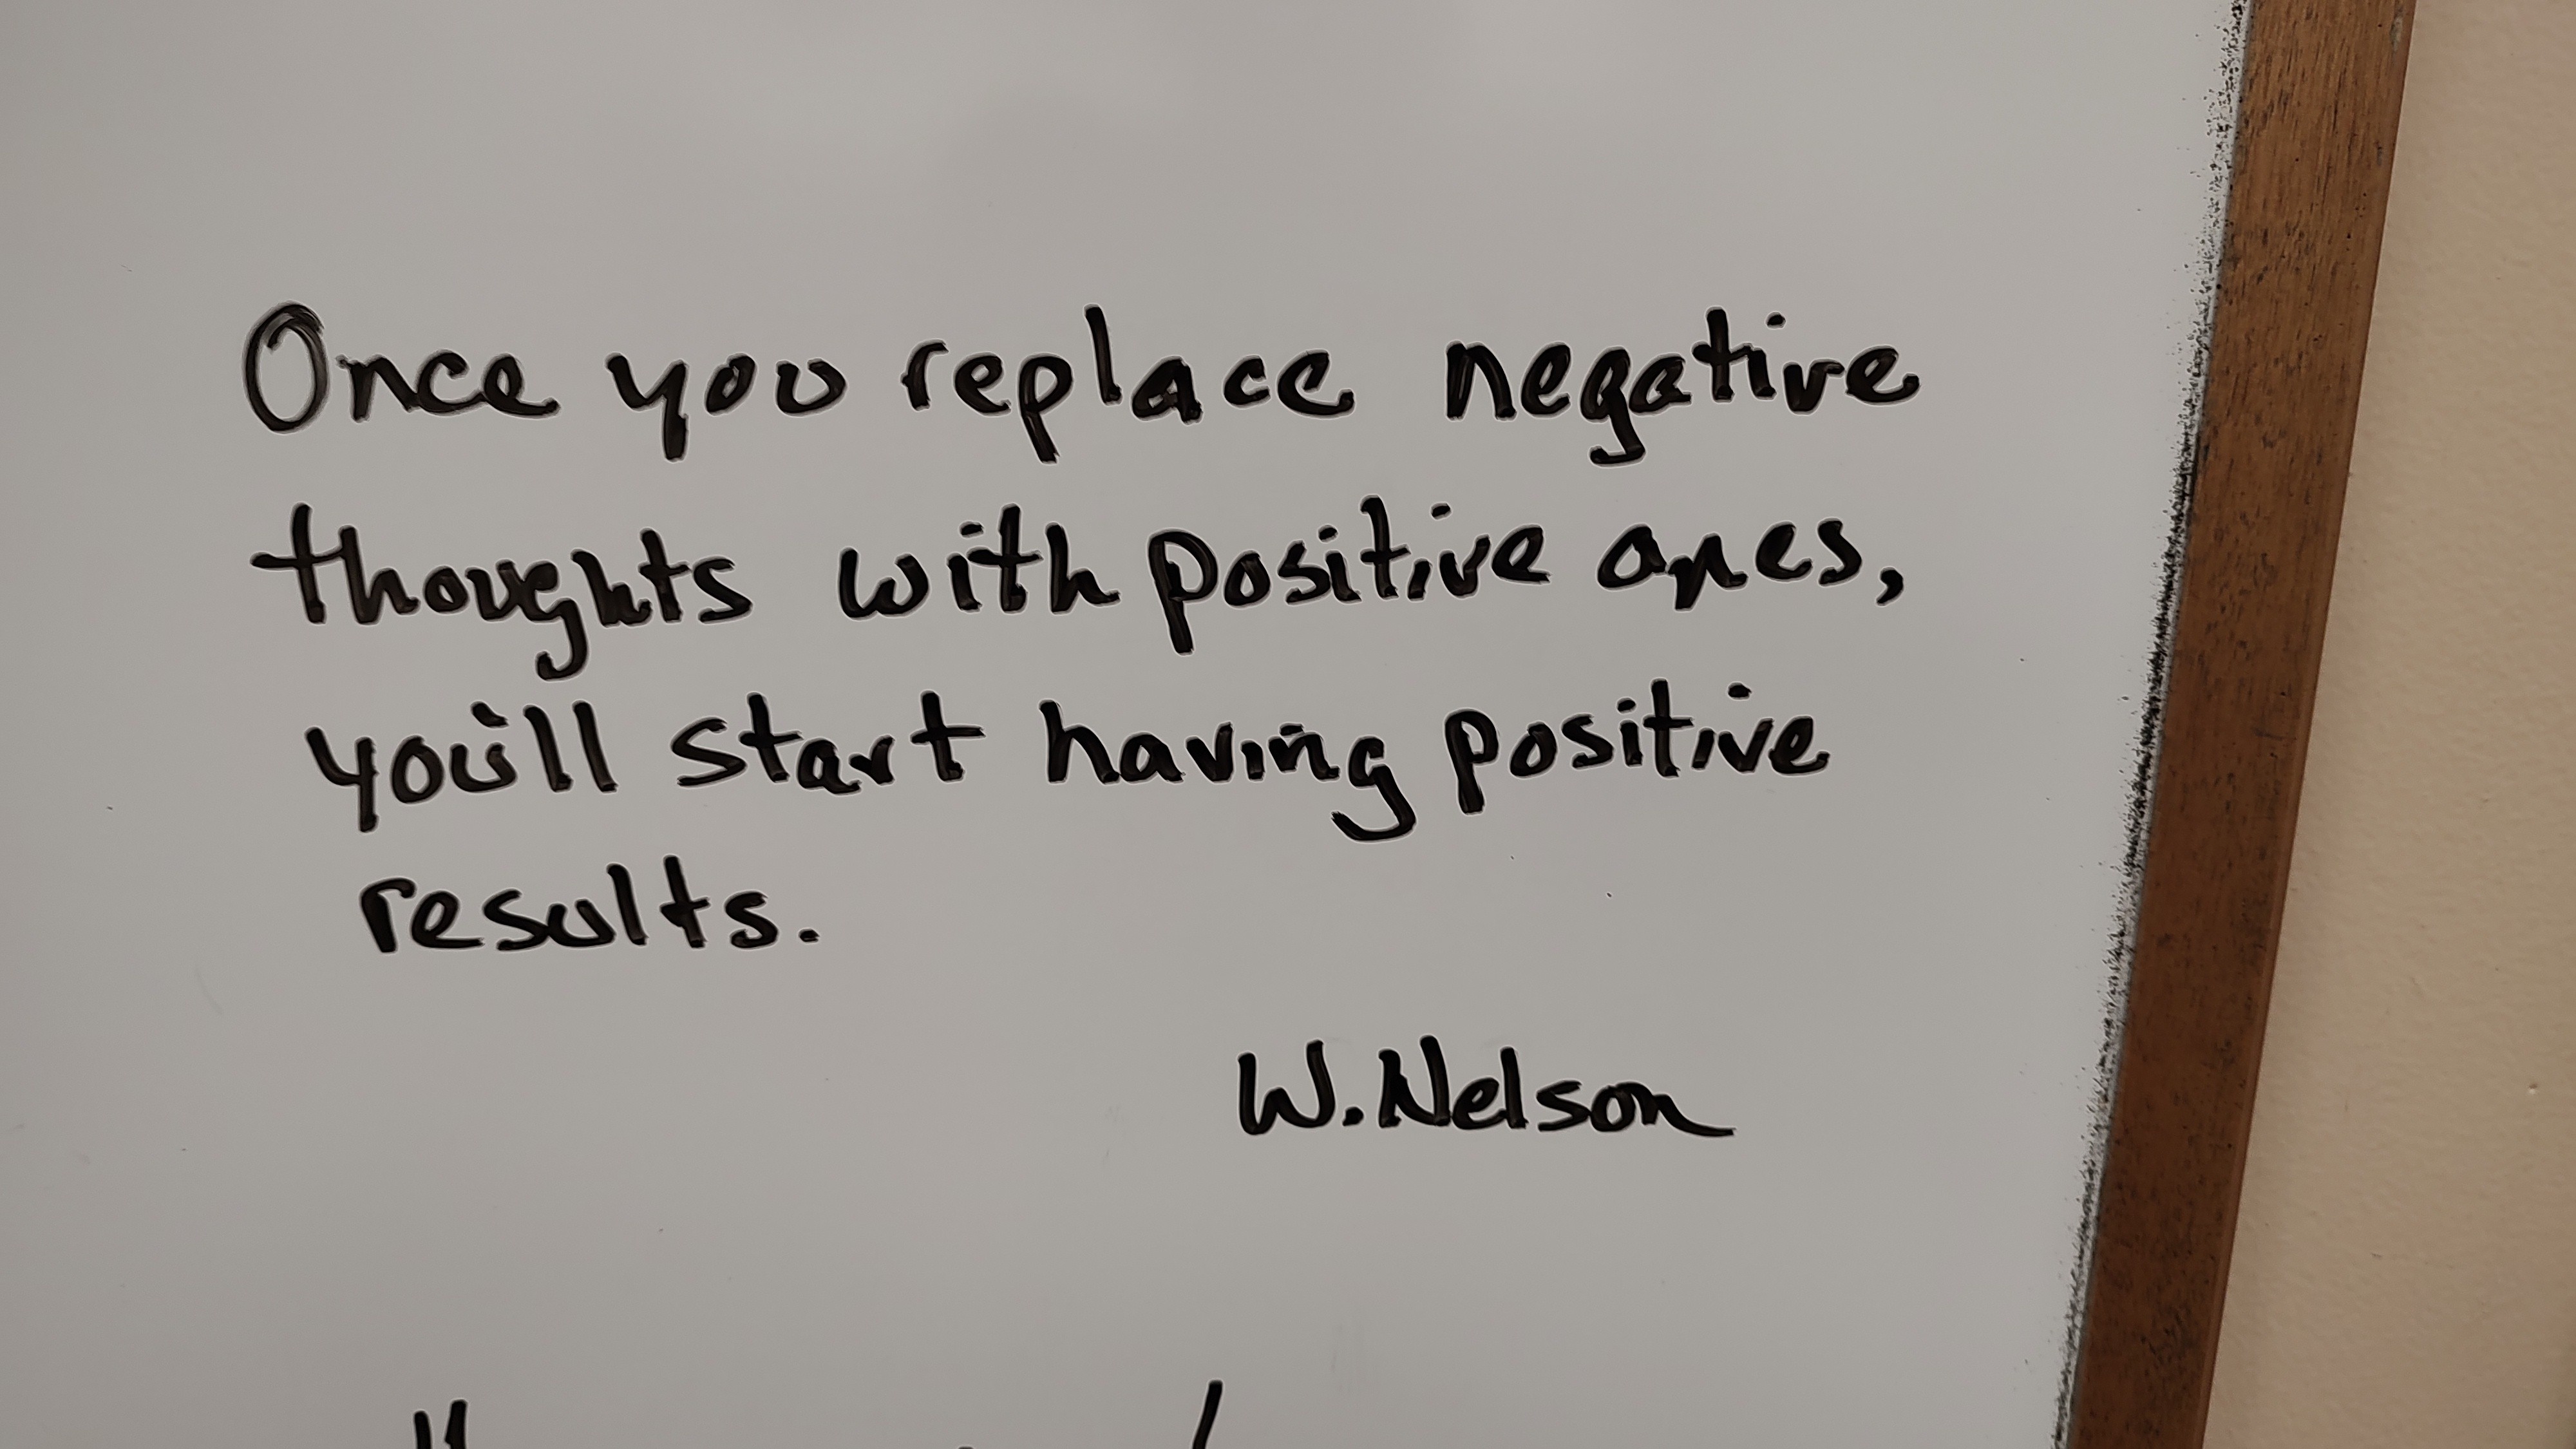 Once you replace negative
thoughts with positive ones,
you'll start having positive
results.
W. Nelson